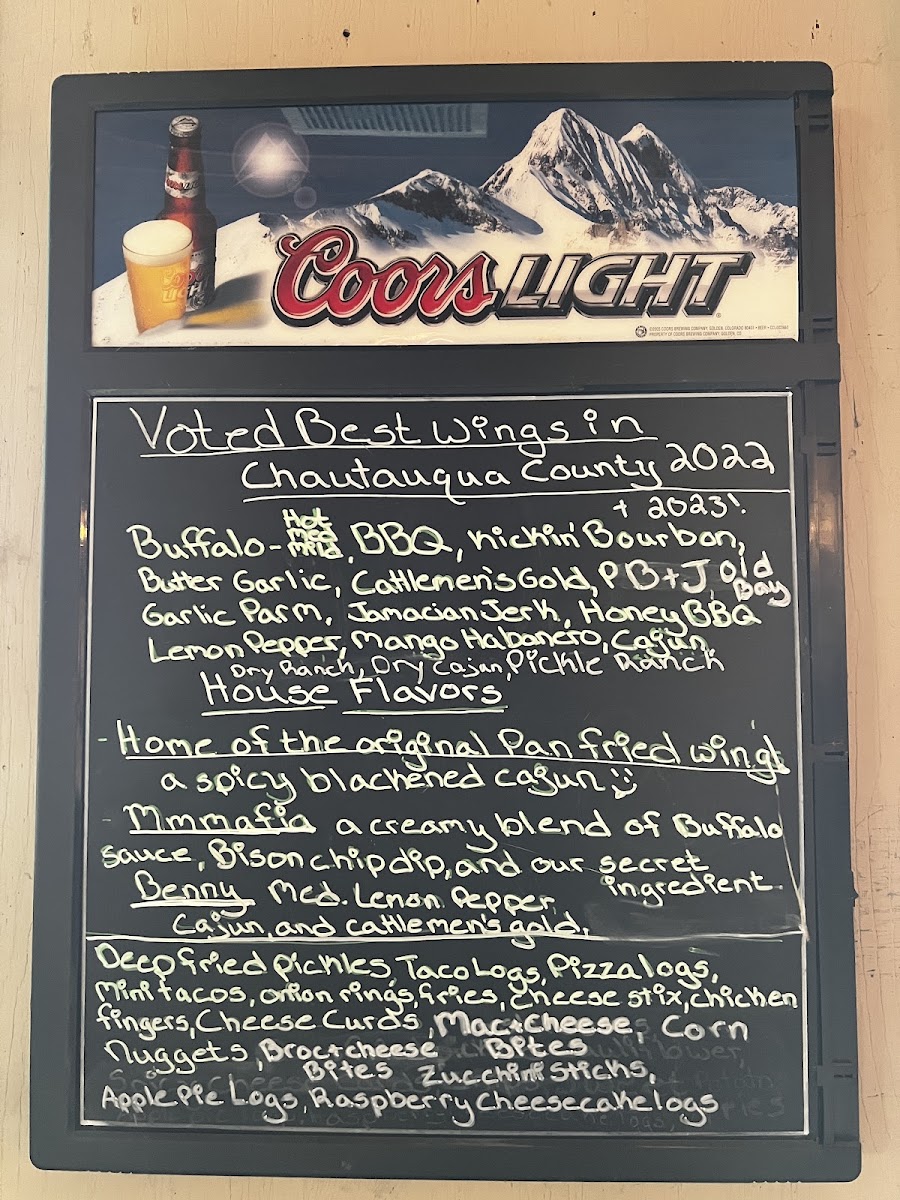 Coors LIGHT
Voted Best Wings in
Chautauqua County 2022
+ 2023!
Buffalo - Hot Med Mild, BBQ, Kickin' Bourbon,
Butter Garlic, Cattlemen's Gold, PB+J, Old Bay
Garlic Parm, Jamacian Jerk, Honey BBQ
Lemon Pepper, Mango Habanero, Cajun,
Dry Ranch, Dry Cajun, Pickle Ranch
House Flavors
- Home of the original Pan fried wing!
a spicy blackened cajun
- Mmmafia a creamy blend of Buffalo
sauce, Bison chip dip, and our secret
ingredient.
Benny Med. Lemon Pepper,
Cajun, and cattlemen's gold.
Deep fried pickles, Taco Logs, Pizza logs,
Mini tacos, onion rings, fries, cheese stix, chicken
fingers, Cheese Curds, Mac+Cheese Bites, Corn
Nuggets, Broc+cheese Bites
Zucchini Sticks,
Apple Pie Logs, Raspberry Cheesecake logs